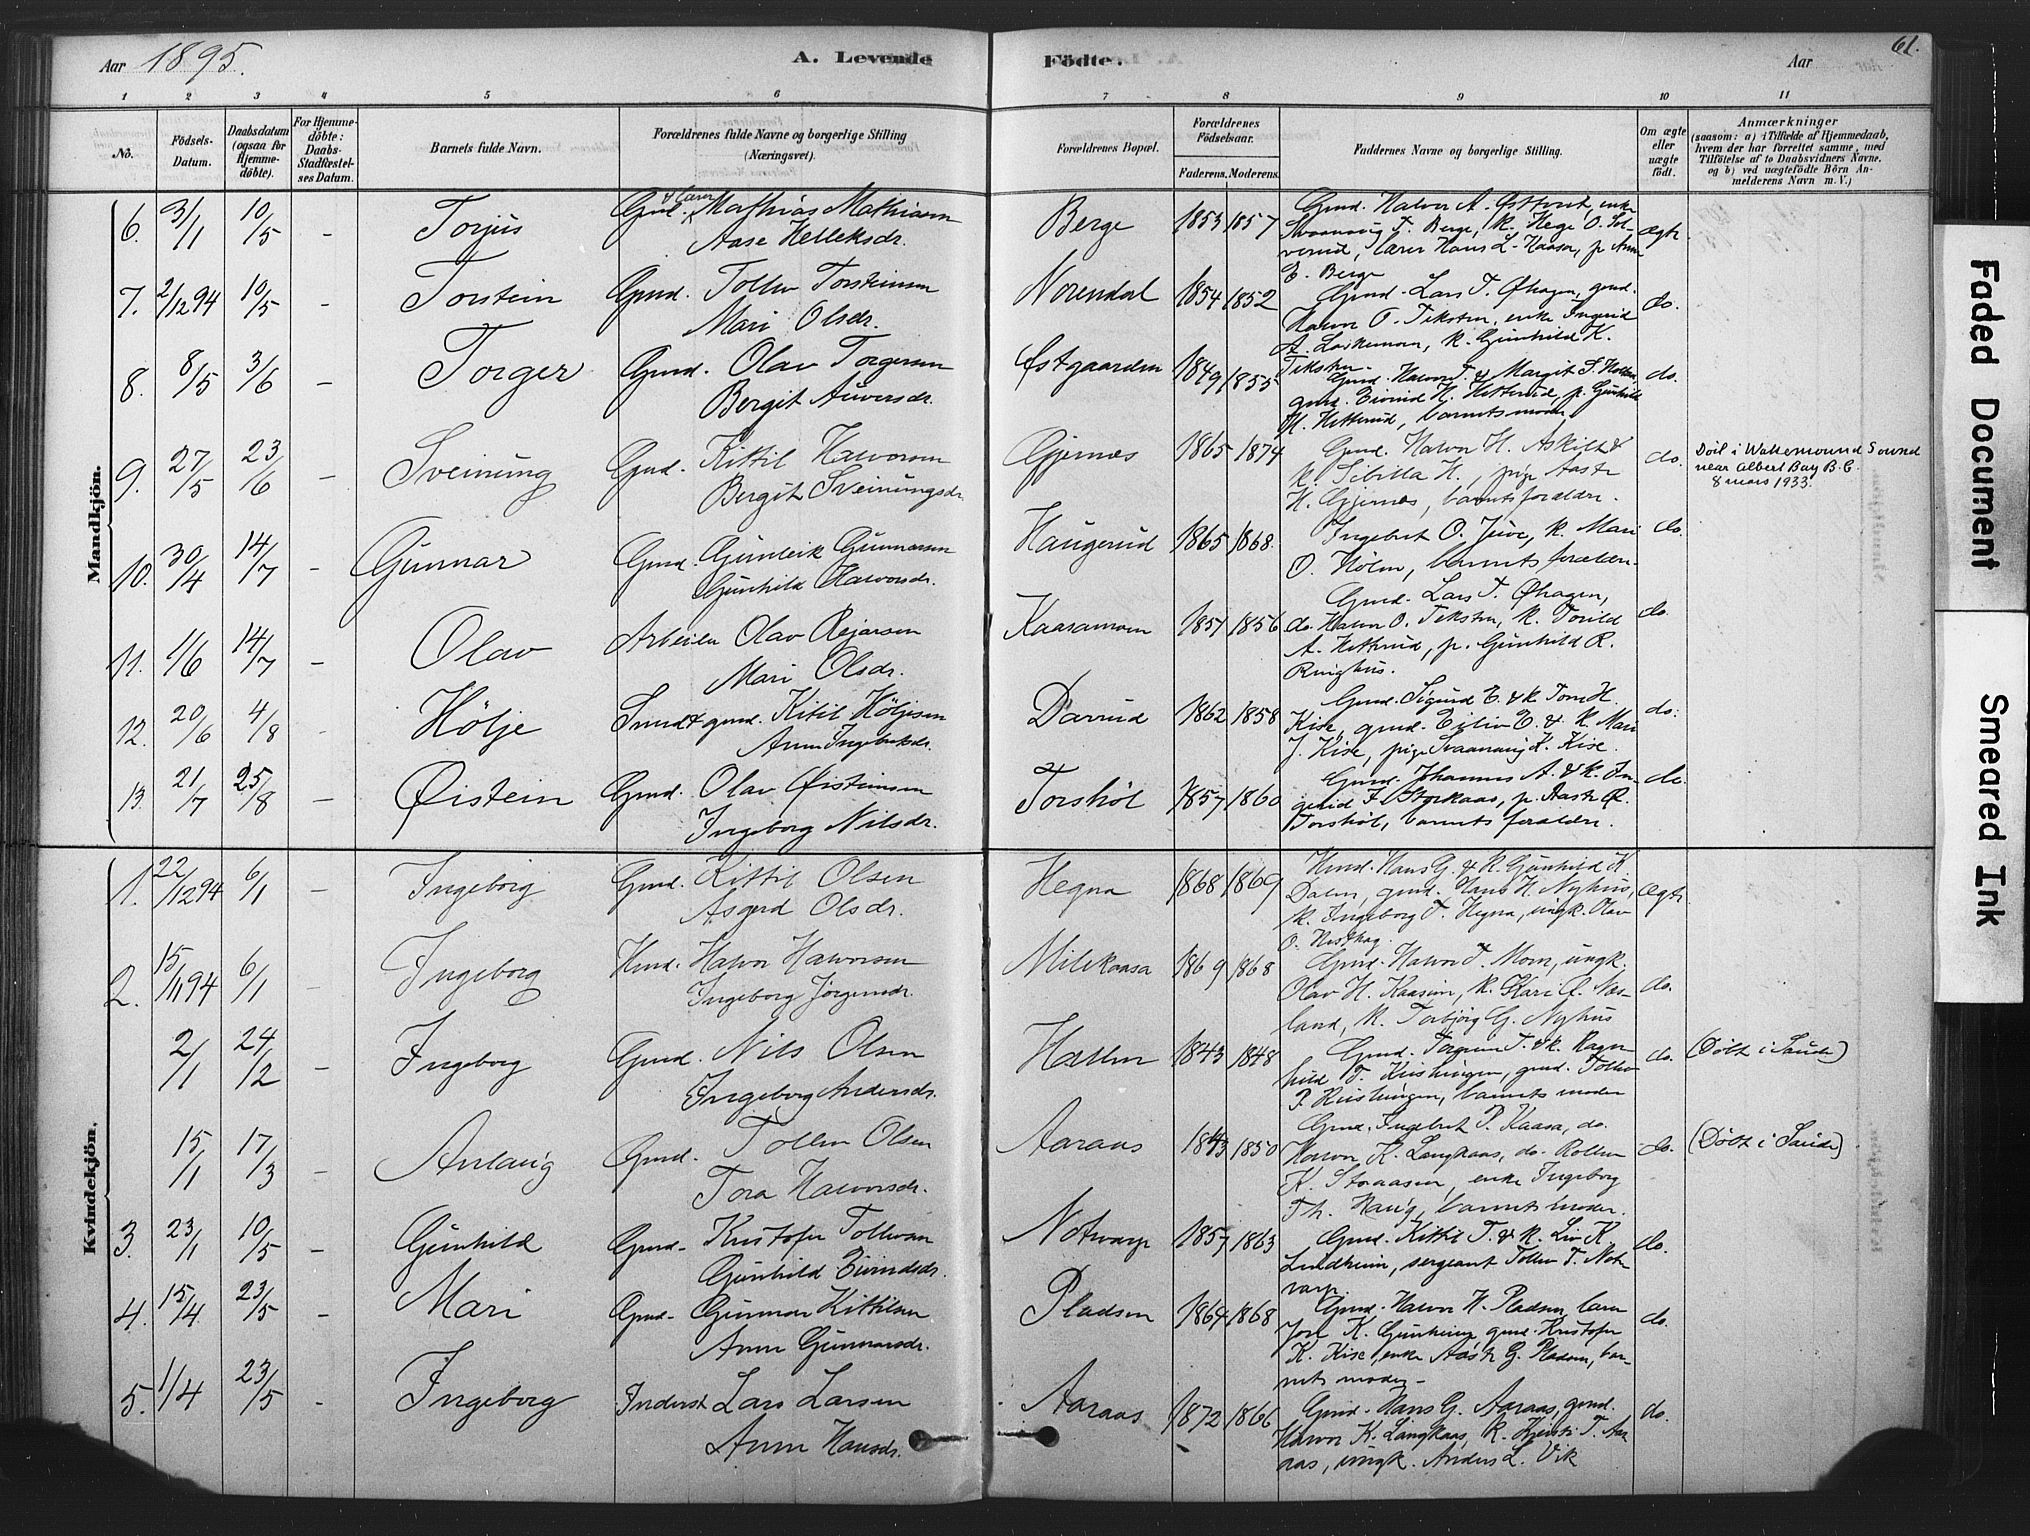 Aar 1895.
A. Levende
Födte.
Aar
61.
1 2 3 4 5 6 7 8 9 10 11
No.
Födsels-Datum.
Daabsdatum (ogsaa for Hjemmedöbte).
For Hjemmedöbte: Daabs-Stadfæstelses Datum.
Barnets fulde Navn.
Forældrenes fulde Navne og borgerlige Stilling
(Næringsvei).
Forældrenes Bopæl.
Forældrenes Födselsaar.
Faderens. Moderens.
Faddernes Navne og borgerlige Stilling.
Om ægte eller uægte födt.
Anmærkninger
(saasom: a) i Tilfælde af Hjemmedaab,
hvem der har forrettet samme, med
Tilföielse af to Daabsvidners Navne.
og b) ved uægtefödte Börn An-
melderens Navn m. V.)
Mandkjön.
6. 3/1 10/5 - Torjus Gmd. & lærer Mathias Mathisen
Aase Helleksdr.
Berge 1853 1857
E. Berge
ægte
7. 2/12 94 10/5 - Torstein Gmd. Tollev Torsteinsen
Mari Olsdr.
Norendal 1854 1852 Gmd. Lars T. Øhagen, gmd.
do.
8. 8/5 3/6 - Torger Gmd. Olav Torgersen
Bergit Auversdr.
Østgaarden 1849 1855
H. Hetterud, barnets moder
do.
9. 27/5 23/6 - Sveinung Gmd. Kittil Halvorsen
Bergit Sveinungsdr.
Gjernes 1865 1874 Gmd. Halvor H. Askilt &
k. Sibilla H., pige Aaste
H. Gjernes, barnets forældre.
do. Död i Wakemound Sound
near Albert Bay B.C.
8 mars 1933.
10. 30/4 14/7 - Gunnar Gmd. Gunleik Gunnarsen
Gunhild Halvorsdr.
Haugerud 1865 1868. Ingebret O. Juve, k. Mari
O. Holm, barnets forældre.
do.
11. 1/6 14/7 - Olav Arbeider Olav Rejarsen
Mari Olsdr.
Kaasamoen 1857 1856 Gmd. Lars T. Øhagen,
do. Halvor O. Teksten, k. Torild
A. Hetterud, p. Gunhild R.
Ringhus.
do.
12. 20/6 4/8 - Hölje Smed & gmd. Kitil Höljesen
Anne Ingebretsdr.
Darrud 1862 1858 Gmd. Sigurd E. & k. Tone H.
Kise, gmd. Eiliv E. & k. Mari
J. Kise, pige Svaanaug K. Kise.
do.
13. 21/7 25/8 - Øistein Gmd. Olav Øisteinsen
Ingeborg Nilsdr.
Torshol 1857 1860 Gmd. Johannes A. & k. In-
gerid H. Storkaas, p. Aaste Ø.
Torshol, barnets forældre.
do.
Kvindekjön.
1. 22/12 94 6/1 - Ingeborg Gmd. Kittil Olsen
Asgerd Olsdr.
Hegna 1868 1869 Hmd. Hans G. & k. Gunhild K.
Dalen, gmd. Hans H. Nyhus,
k. Ingeborg T. Hegna, ungk. Olav
O. Nesthag.
ægte
2. 15/11 94 6/1 Ingeborg Hmd. Halvor Halvorsen
Ingeborg Jörgensdr.
Milekaasa 1869 1868 Gmd. Halvor T. Moen, ungk.
Olav H. Kaasien, k. Kari O. Nes-
land, k. Torbjörg G. Nyhus
do.
2/1 24/2 - Ingeborg Gmd. Nils Olsen
Ingeborg Andersdr.
Hallen 1843 1848
barnets moder
do. (Döbt i Saude)
15/1 17/3 - Anlaug Gmd. Tollev Olsen
Tora Halvorsdr.
Aaraas 1843 1850 Gmd. Ingebret P. Kaasa, do.
Halvor K. Langkaas, do. Rollev
K. Storaasen, enke Ingeborg
Th. Haug, barnets moder.
do. (Döbt i Saude)
3. 23/1 10/5 - Gunhild Gmd. Kristofer Tollevsen
Gunhild Eivindsdr.
Notvarp 1857 1863 Gmd. Kittil T. & k. Liv K.
Lindheim, sergeant Tollev T. Not-
varp.
do.
4. 15/4 23/5 - Mari Gmd. Gunnar Kittilsen
Anne Gunnarsdr.
Pladsen 1864 1868 Gmd. Halvor H. Pladsen, lærer
Joel K. Gunheim, gmd. Kristofer
K. Kise, enke Aaste G. Pladsen, bar-
nets moder.
do.
5. 1/4 23/5 - Ingeborg Inderst Lars Larsen
Anne Hansdr.
Aaraas 1872 1866 Gmd. Hans G. Aaraas, gmd.
Halvor K. Langkaas, k. Kjersti T. Aa-
raas, ungk. Anders L. Vik
do.
Faded Document
Smeared Ink